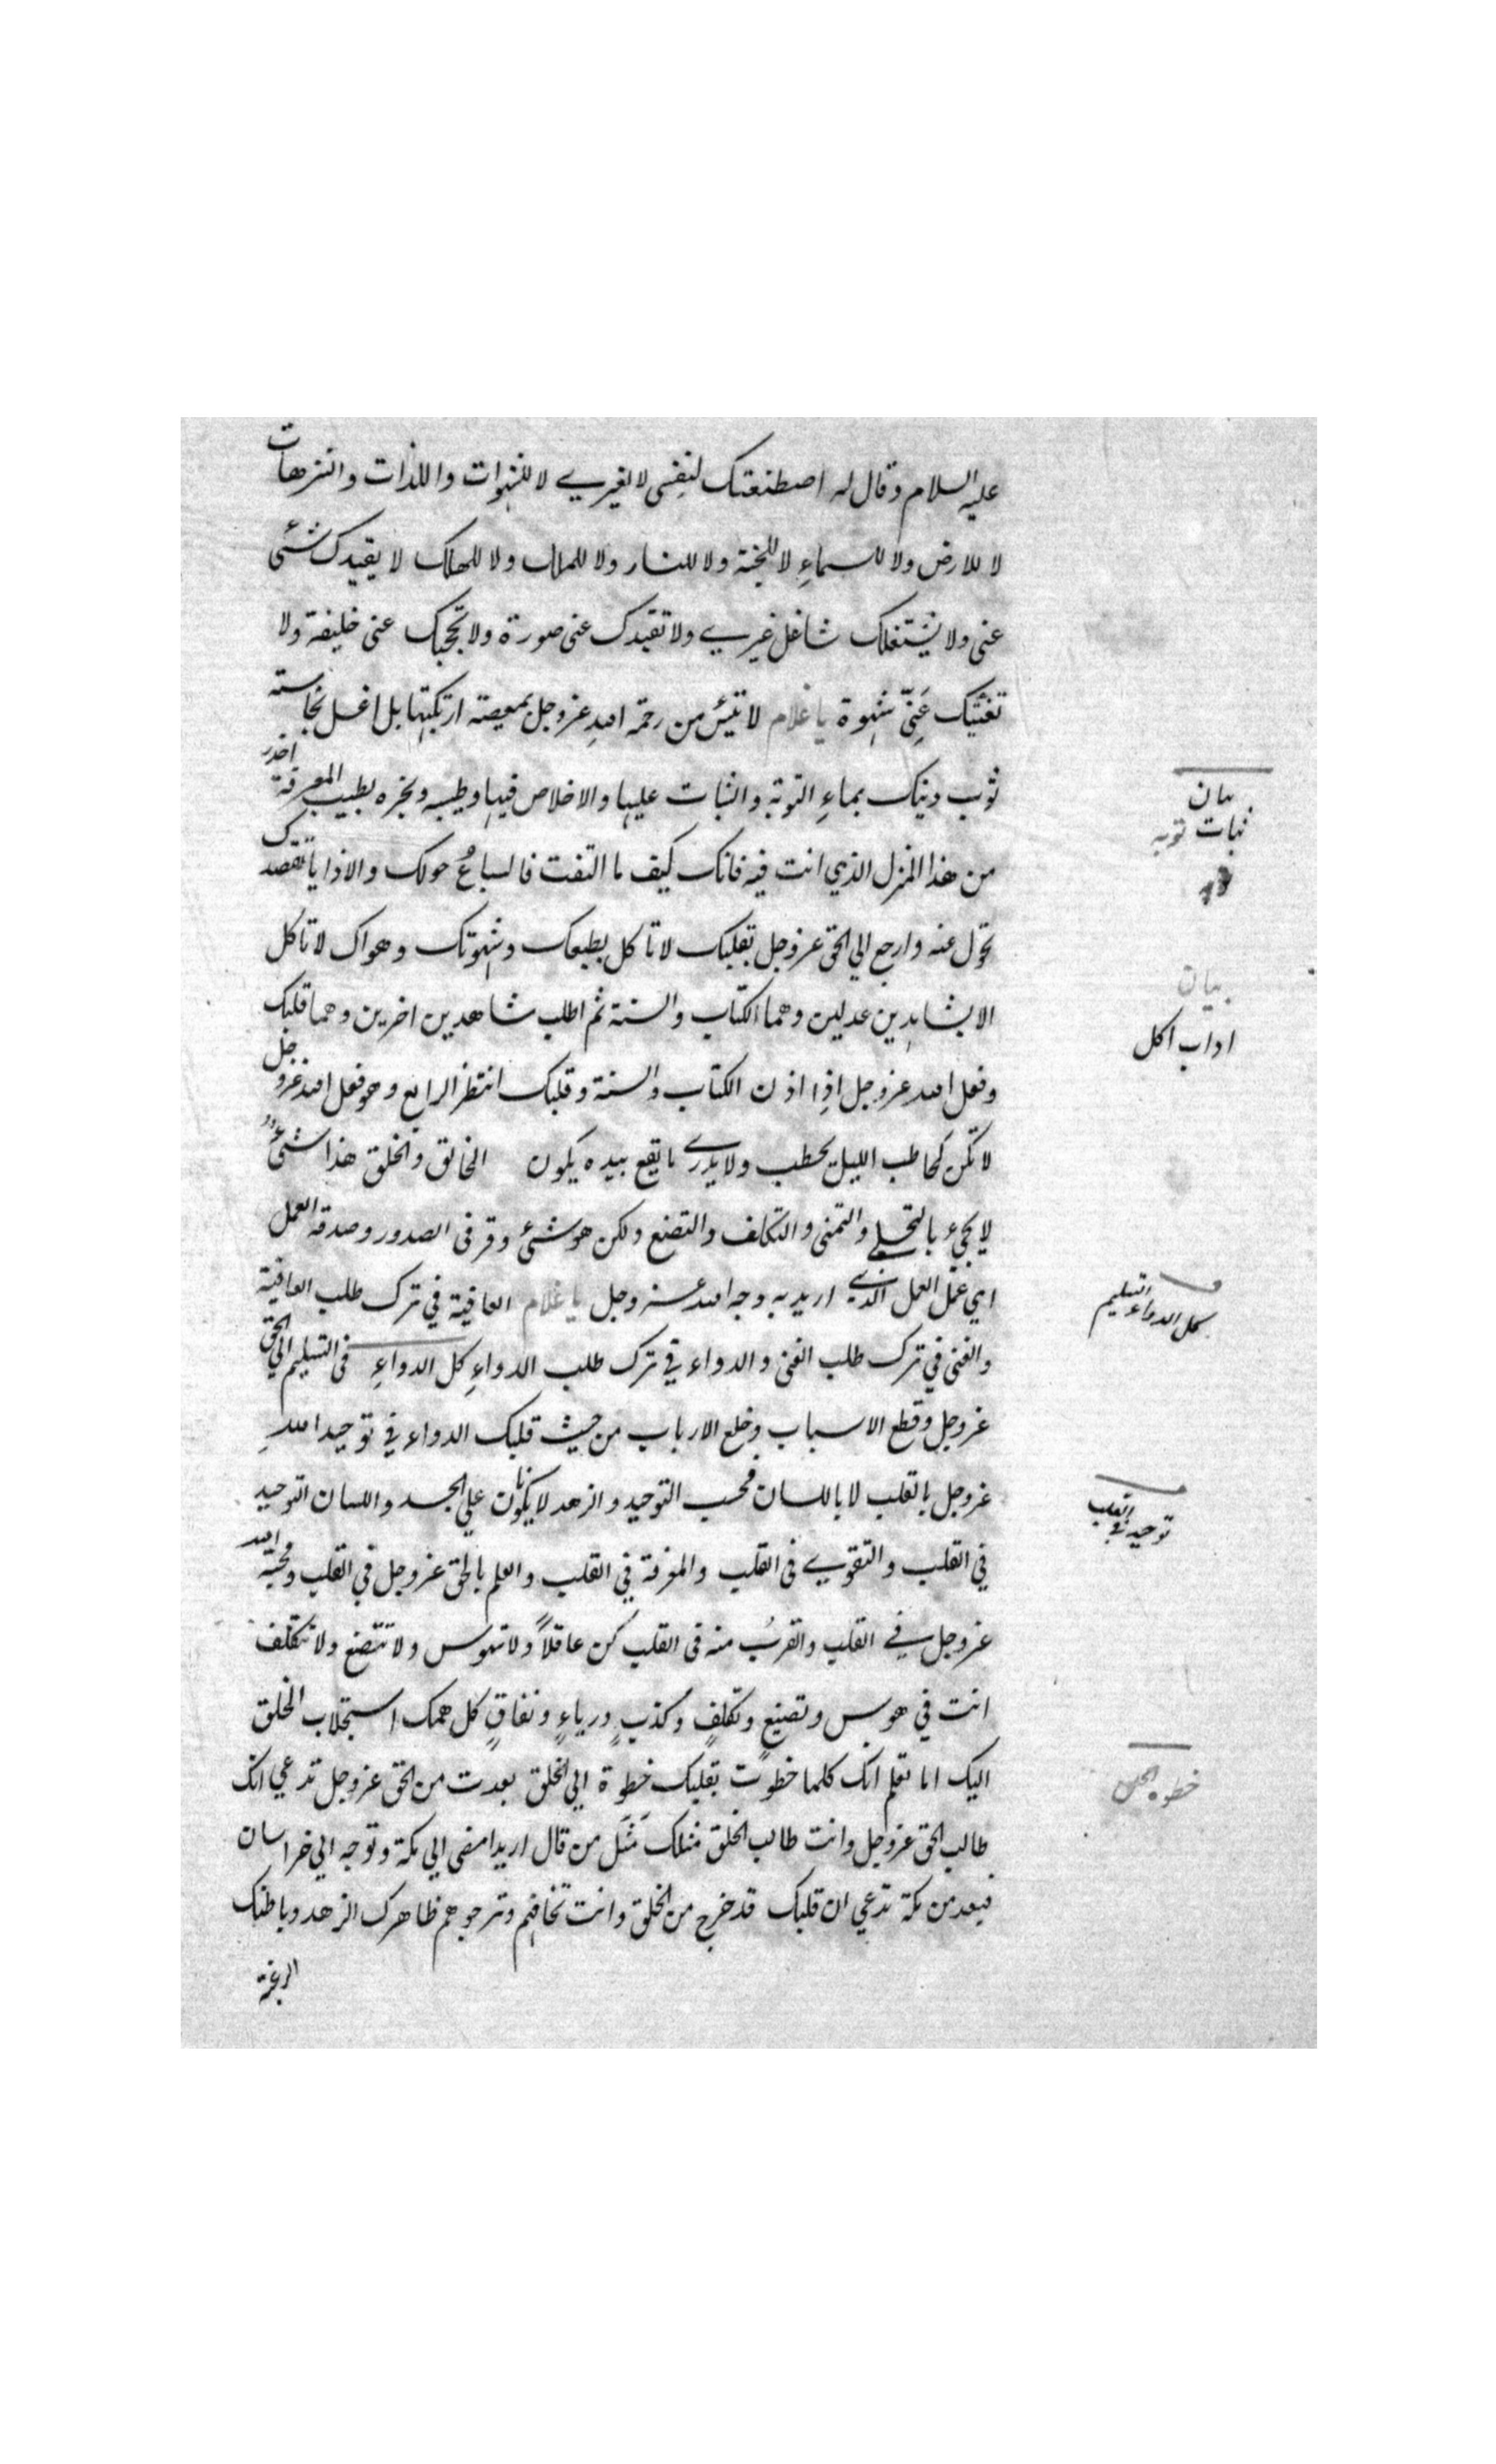 عليه السلام وقال له اصطنعتك لنفسى لا لغيرے لا للشهوات واللذات والنزهات
لا للارض ولا للسماءِ لا للجنة ولا للنار ولا للملك ولا للهلك لا يقيدك شئ
عنى ولا يشتغلك شاغل غيرے ولا تقيدك عنى صورة ولا تحجبك عنى خليفة ولا
تغنيك عَنِّى شهوة يا غلام لا تيئس من رحمة اللهِ عزوجل بمعصية ارتكبتها بل اغسل نجاسته
ثوب دينك بماءِ التوبة والثبات عليها والاخلاص فيها وطيبه وبخره بطيب المعرفة احذر
من هذا المنزل الذي انت فيه فانك كيف ما التفت فالسباعُ حولك والاذايا تقصدك
تحوّل عنه وارجع الي الحق عزوجل بقلبك لا تاكل بطبعك وشهوتك وهواك لا تاكل
الا بشاهدين عدلين وهما الكتاب والسنة ثم اطلب شاهدين اخرين وهما قلبك
وفعل الله عزوجل اذا اذن الكتاب والسنة وقلبك انتظر الرابع وهو فعل الله عزوجل
لا تكن كحاطب الليل يحطب ولا يدرے ما يقع بيده يكون الخالق والخلق هذا شئٌ
لا يجئ بالتحلے والتمنى والتكلف والتصنع ولكن هو شئ وقر فى الصدور وصدقه العمل
اي عمل العمل الذے اريد به وجه الله عز وجل يا غلام العافية في ترك طلب العافية
والغنى في ترك طلب الغنى والدواء في ترك طلب الدواءِ كل الدواءِ فى التسليم الي الحق
عزوجل وقطع الاسباب وخلع الارباب من حيث قلبك الدواء في توحيد اللهِ
عزوجل بالقلب لا باللسان فحسب التوحيد والزهد لا يكونان علي الجسد واللسان التوحيد
في القلب والتقوے فى القلب والمعرفة في القلب والعلم بالحق عزوجل في القلب ومحبة الله
عزوجل فے القلب والقربُ منه فى القلب كن عاقلاً ولا تهوس ولا تتصنع ولا تتكلف
انت في هوس وتصنعٍ وتكلفٍ وكذبٍ ورياءٍ ونفاقٍ كل همك استجلاب الخلق
اليك اما تعلم انك كلما خطوت بقلبك خطوة الي الخلق بعدت من الحق عزوجل تدعي انك
طالب الحق عزوجل وانت طالب الخلق مثلك مَثَل من قال اريد امضى الي مكة وتوجه الي خراسان
فبعد من مكة تدعي ان قلبك قد خرج من الخلق وانت تخافهم وترجوهم ظاهرك الزهد وباطنك
الرغبة
بيان
ثبات توبه
بيان
اداب اكل
كل الدواء التسليم
توحيد فى القلب